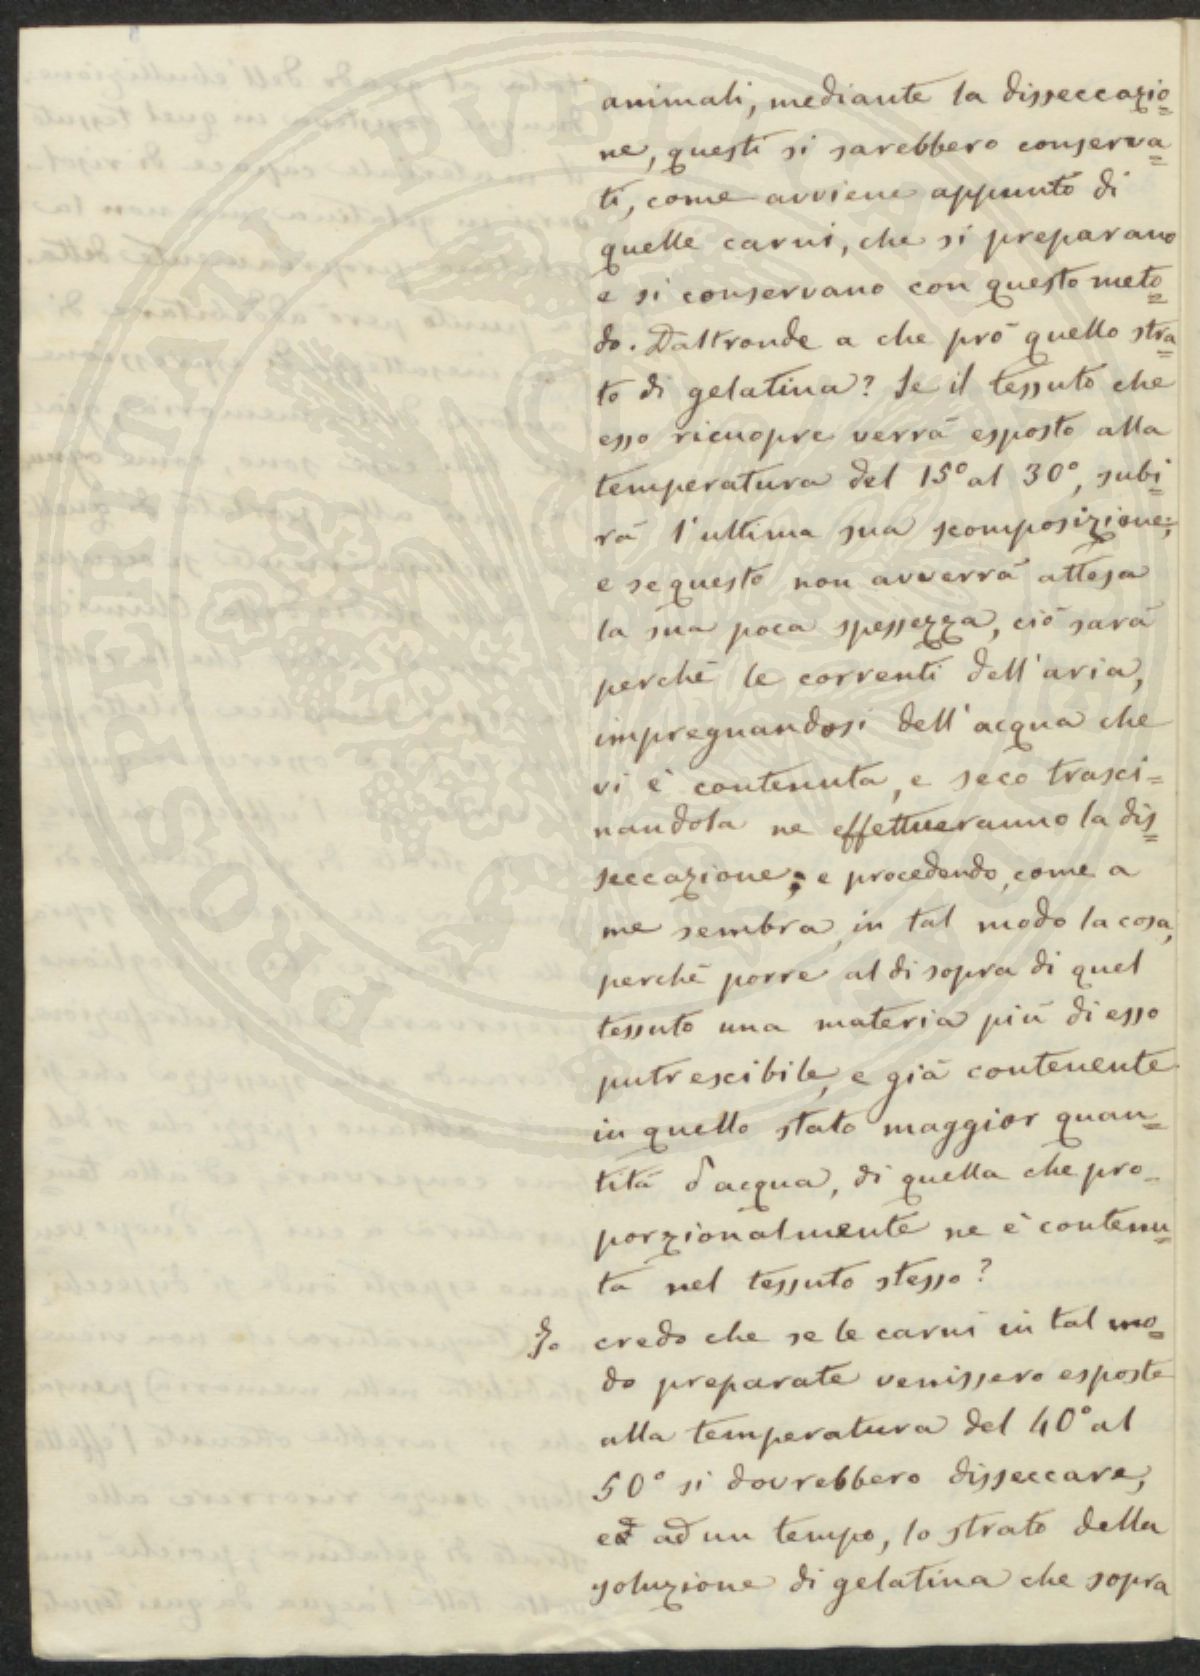 animali, mediante la disseccazio=
ne, questi si sarebbero conserva=
ti, come avviene appunto di
quelle carni, che si preparano
e si conservano con questo meto=
do. D'altronde a che prò quello stra=
to di gelatina? Se il tessuto che
esso ricuopre verrà esposto alla
temperatura del 15° al 30°, subi=
rà l'ultima sua scomposizione;
e se questo non avverrà attesa
la sua poca spessezza, ciò sarà
perchè le correnti dell'aria,
impregnandosi dell'acqua che
vi è contenuta, e seco trasci=
nandola ne effettueranno la dis=
seccazione; e procedendo, come a
me sembra, in tal modo la cosa,
perchè porre al di sopra di quel
tessuto una materia più di esso
putrescibile, e già contenente
in quello stato maggior quan=
tità d'acqua, di quella che pro=
porzionalmente ne è contenu=
ta nel tessuto stesso?
Io credo che se le carni in tal mo=
do preparate venissero esposte
alla temperatura del 40° al
50° si dovrebbero disseccare,
ed ad un tempo, lo strato della
soluzione di gelatina che sopra
PROSPERITATI PVBLICAE AVGENDAE